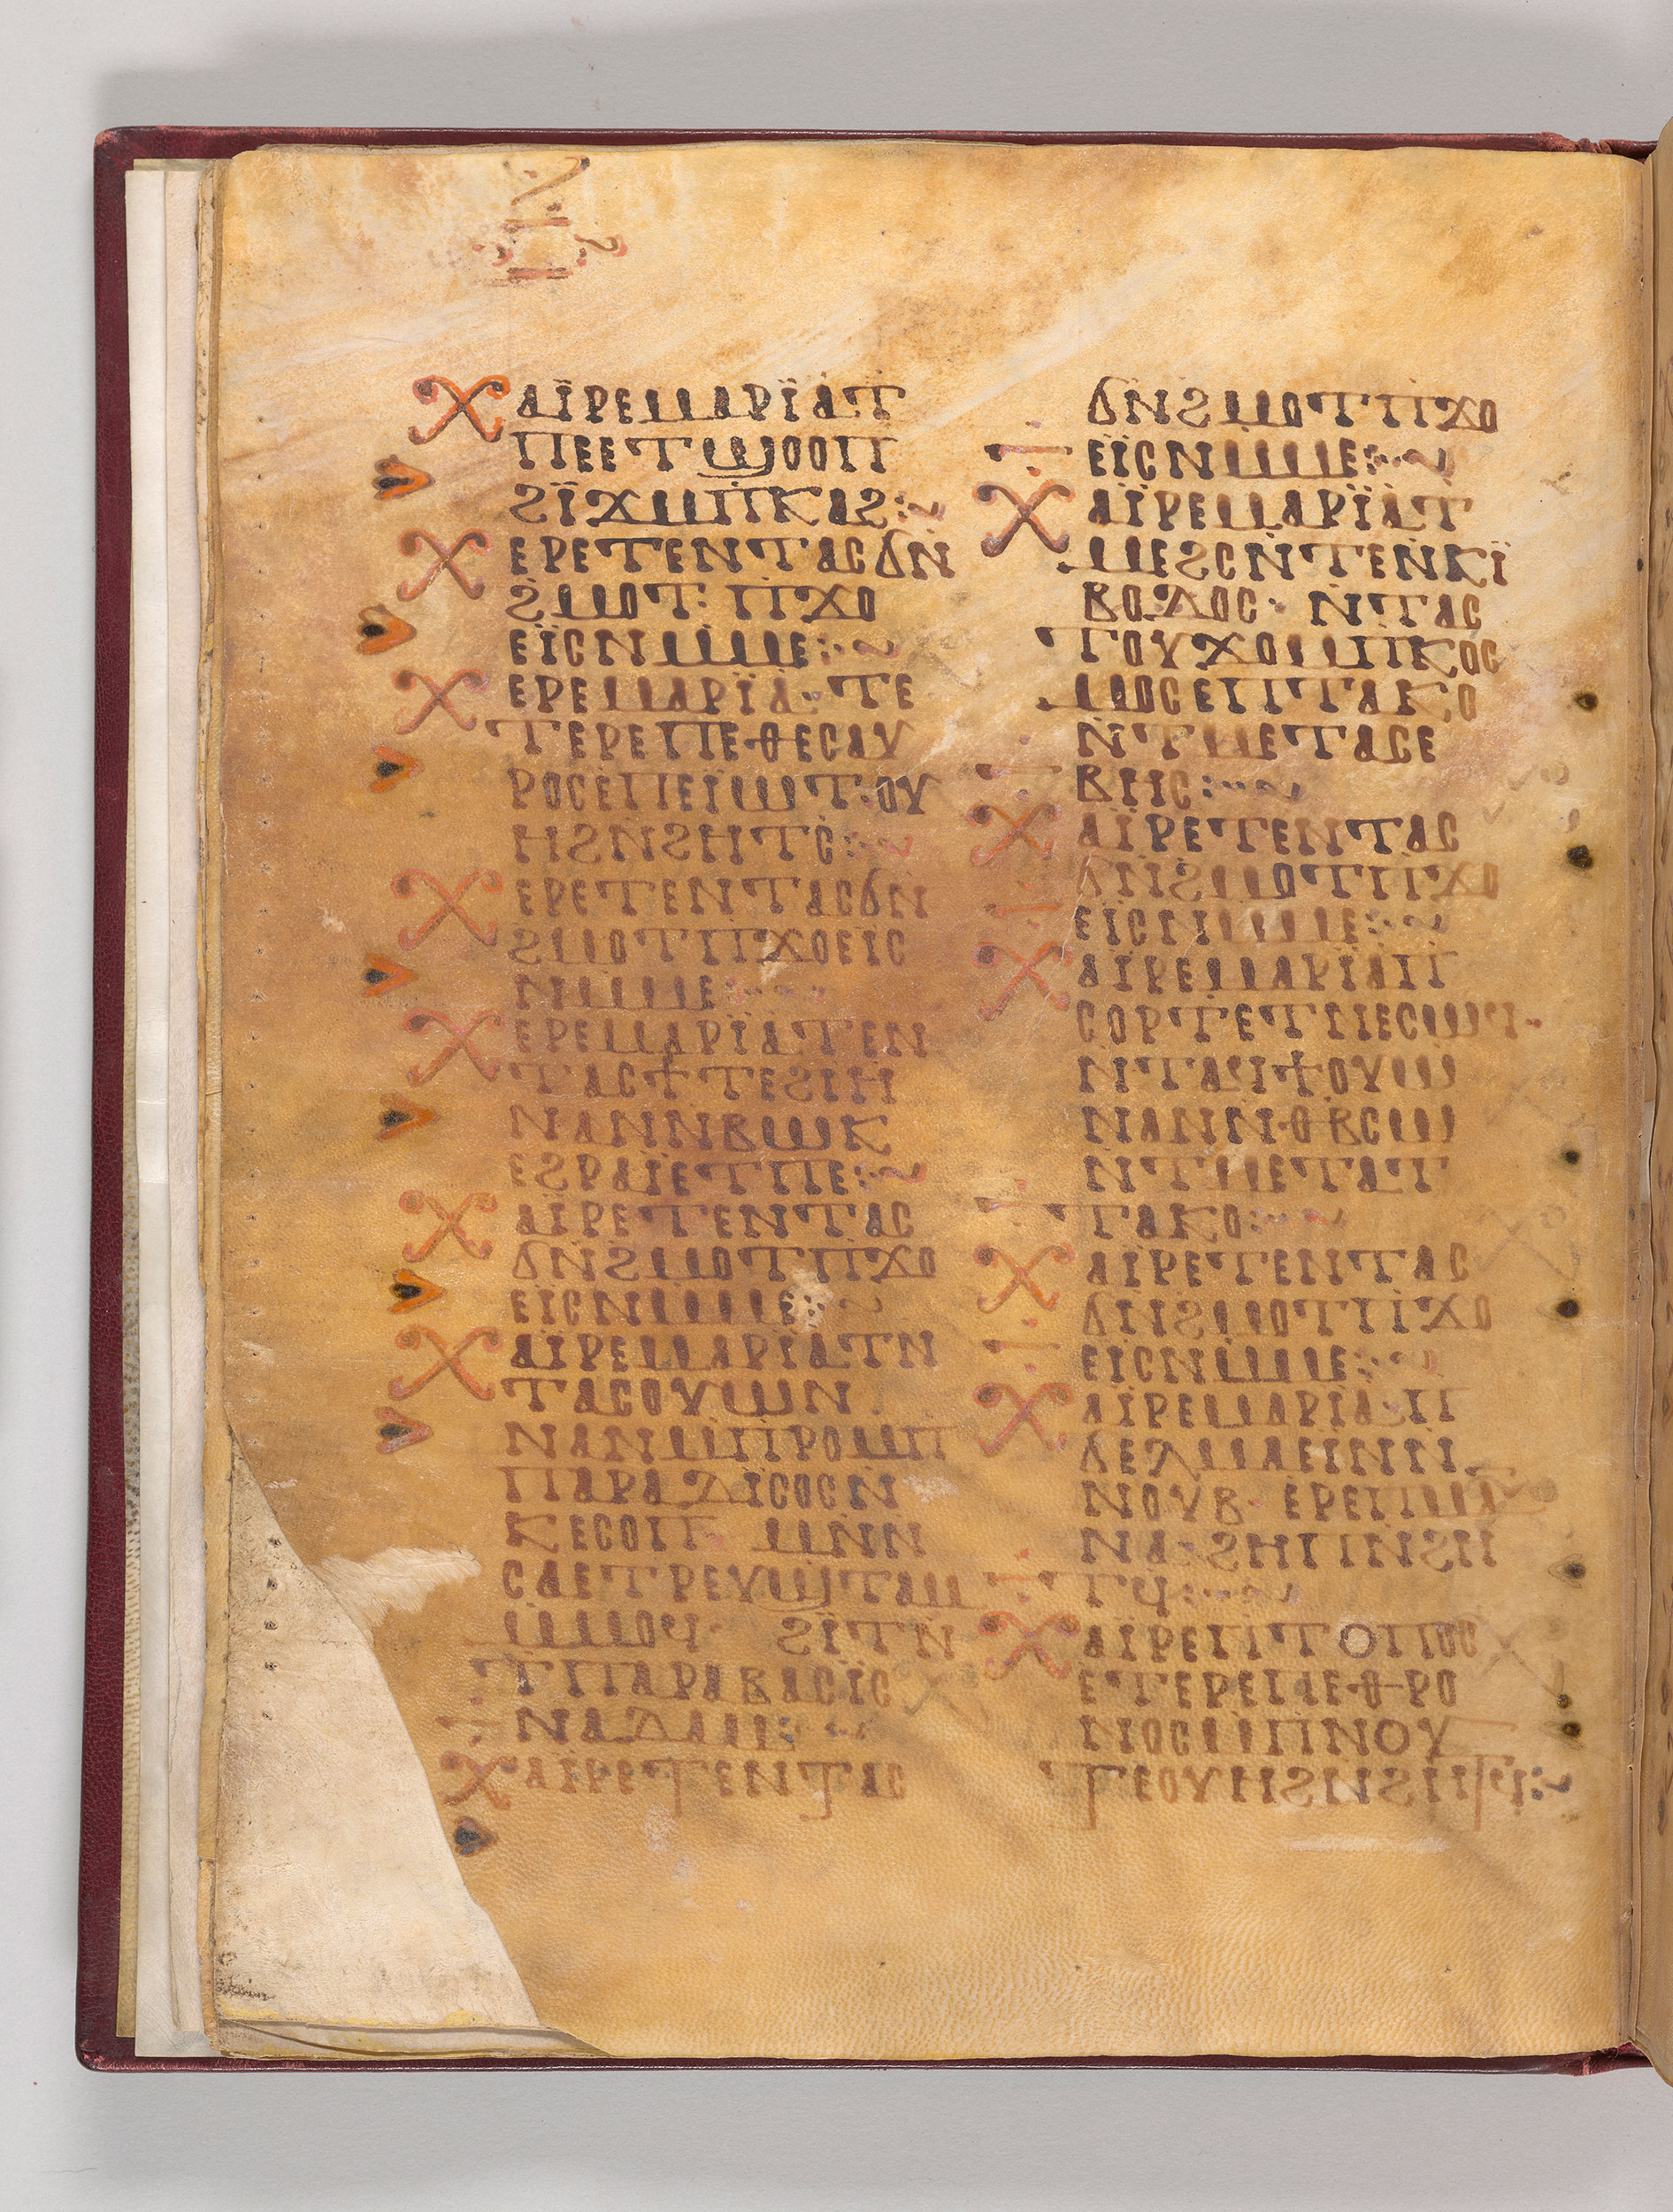 ⲭⲁⲓ̈ⲣⲉⲙⲁⲣⲓ̈ⲁⲧ
ⲡⲉⲉⲧϣⲟⲟⲡ
ϩⲓ̈ϫⲙⲡⲕⲁϩ:~
ⲭⲉⲣⲉⲧⲉⲛⲧⲁⲥϭⲛ
ϩⲙⲟⲧ: ⲡϫⲟ
ⲉⲓ̈ⲥⲛⲙⲙⲉ:~
ⲭⲉⲣⲉⲙⲁⲣⲓ̈ⲁ· ⲧⲉ
ⲧⲉⲣⲉⲡⲉⲑⲉⲥⲁⲩ
ⲣⲟⲥⲉⲡⲉⲓⲱⲧ·ⲟⲩ
ⲏϩⲛϩⲏⲧⲥ:~
ⲭⲉⲣⲉⲧⲉⲛⲧⲁⲥϭⲛ
ϩⲙⲟⲧⲡϫⲟⲉⲓⲥ
ⲛⲙⲙⲉ:~
ⲭⲉⲣⲉⲙⲁⲣⲓ̈ⲁⲧⲉⲛ
ⲧⲁⲥϯⲧⲉϩⲓⲏ
ⲛⲁⲛⲛⲃⲱⲕ
ⲉϩⲣⲁⲓ̈ⲉⲧⲡⲉ:~
ⲭⲁⲓ̈ⲣⲉⲧⲉⲛⲧⲁⲥ
ϭⲛϩⲙⲟⲧⲡϫⲟ
ⲉⲓ̈ⲥⲛⲙⲙⲉ:~
ⲭⲁⲓ̈ⲣⲉⲙⲁⲣⲓ̈ⲁⲧⲛ
ⲧⲁⲥⲟⲩⲱⲛ
ⲛⲁⲛⲙⲡⲣⲟⲙⲡ
ⲡⲁⲣⲁⲇⲓ̈ⲥⲟⲥⲛ
ⲕⲉⲥⲟⲡ· ⲙⲛⲛ
ⲥⲁⲉⲧⲣⲉⲩϣⲧⲁⲙ
ⲙⲙⲟϥ· ϩⲓ̈ⲧⲛ
ⲧⲡⲁⲣⲁⲃⲁⲥⲓ̈ⲥ
ⲛⲁⲇⲁⲙ:~
ⲭⲁⲓ̈ⲣⲉⲧⲉⲛⲧⲁⲥ
ϭⲛϩⲙⲟⲧⲡϫⲟ
ⲉⲓ̈ⲥⲛⲙⲙⲉ:~
ⲭⲁⲓ̈ⲣⲉⲙⲁⲣⲓ̈ⲁⲧ
ⲙⲉϩⲥⲛⲧⲉⲛⲕⲓ̈
ⲃⲟⲇⲟⲥ· ⲛⲧⲁⲥ
ⲧⲟⲩϫⲟⲙⲡⲕⲟⲥ
ⲙⲟⲥⲉⲡⲧⲁⲕⲟ
ⲛⲧⲙⲉⲧⲁⲥⲉ
ⲃⲏⲥ:~
ⲭⲁⲓ̈ⲣⲉⲧⲉⲛⲧⲁⲥ
ϭⲛϩⲙⲟⲧⲡϫⲟ
ⲉⲓ̈ⲥⲛⲙⲙⲉ:~
ⲭⲁⲓ̈ⲣⲉⲙⲁⲣⲓ̈ⲁⲡ
ⲛⲁⲛⲛⲑⲃⲥⲱ
ⲛⲧⲙⲉⲧⲁⲧ
ⲧⲁⲕⲟ:~
ⲭⲁⲓ̈ⲣⲉⲧⲉⲛⲧⲁⲥ
ϭⲛϩⲙⲟⲧⲡϫⲟ
ⲉⲓⲥⲛⲙⲙⲉ:~
ⲭⲁⲓ̈ⲣⲉⲙⲁⲣⲓⲁ·ⲡ
ϭⲉⲗⲙⲁⲉⲓⲛⲛ
ⲛⲟⲩⲃ· ⲉⲣⲉⲡⲙⲁⲛ
ⲛⲁ·ϩⲏⲡⲛϩⲏ
ⲧϥ:~
ⲭⲁⲓ̈ⲣⲉⲡⲧⲟⲡⲟⲥ
ⲉⲧⲉⲣⲉⲡⲉⲑⲣⲟ
ⲛⲟⲥⲙⲡⲛⲟⲩ
ⲧⲉⲟⲩⲏϩⲛϩⲏⲧϥ:~